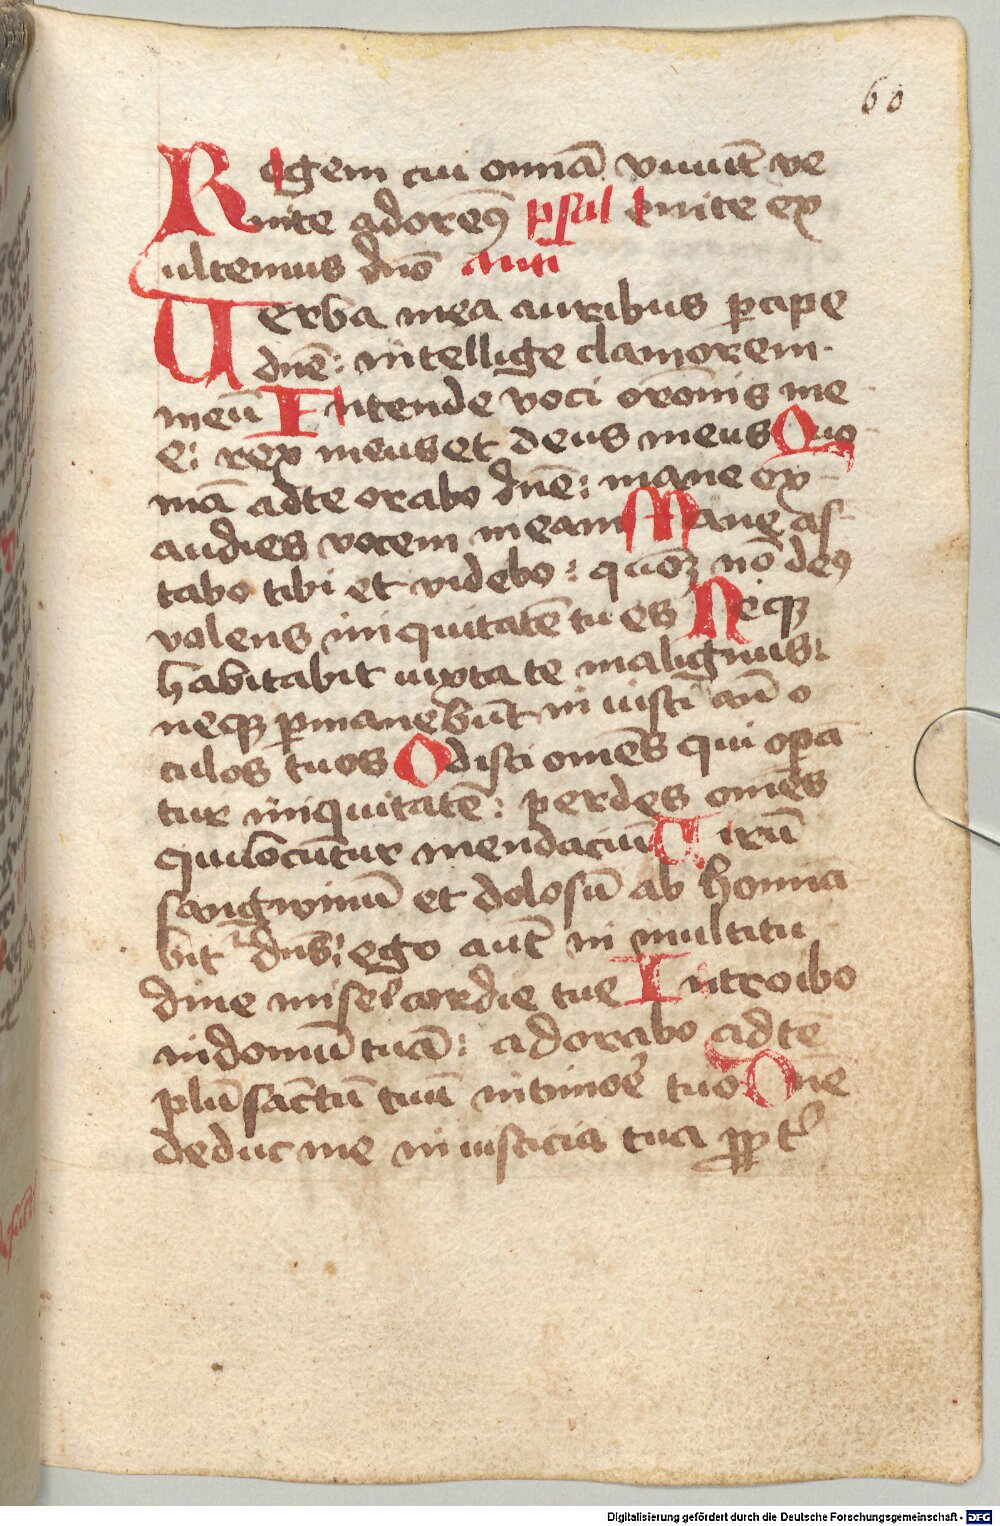 60
Regem cui omnā viuūt ve
nite adorem⁹ psal enite ex
ultemus dn̄o anti
Uerba mea auribus p̱cipe
dn̄e: intellige clamorem
meū Intende voci or̄onis me
e: rex meus et deus meus Quo
niā ad te orabo dn̄e: mane ex
audies vocem meam Mane as
tabo tibi et videbo: quoꝫ nō de⁹
volens iniquitatē tu es Neqꝫ
habitabit iuxta te malignus:
neqꝫ p̱manebūt iniusti an̄ o
culos tuos Odisti om̄es qui opā
tur iniquitatē: perdes om̄es
qui locūtur mendaciū Uirū
sangwinū et dolosū ab homīa
bit᷑ dn̄s: ego aūt in multitu
dine misericordie tue Introibo
in domū tuā: adorabo ad tē
plū sāctū tuū in timoē tuo Dn̄e
deduc me in iusticia tua ꝓpt᷑
Digitalisierung gefördert durch die Deutsche Forschungsgemeinschaft - DFG